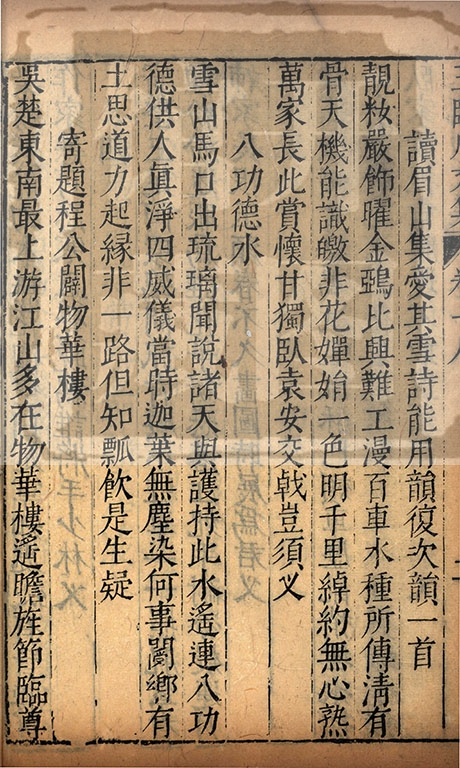 讀眉山集愛其雪詩能用韻復次韻一首
靚粧嚴飾曜金鵶比興難工漫百車水種所傳清有
骨天機能識皦非花嬋娟一色明千里綽約無心熟
萬家長此賞懷甘獨臥袁安交戟豈須义
八功德水
雪山馬口出琉璃聞說諸天與護持此水遙連八功
德供人真淨四威儀當時迦葉無塵染何事閿鄉有
土思道力起緣非一路但知瓢飲是生疑
寄題程公闢物華樓
吳楚東南最上游江山多在物華樓遙瞻旌節臨尊